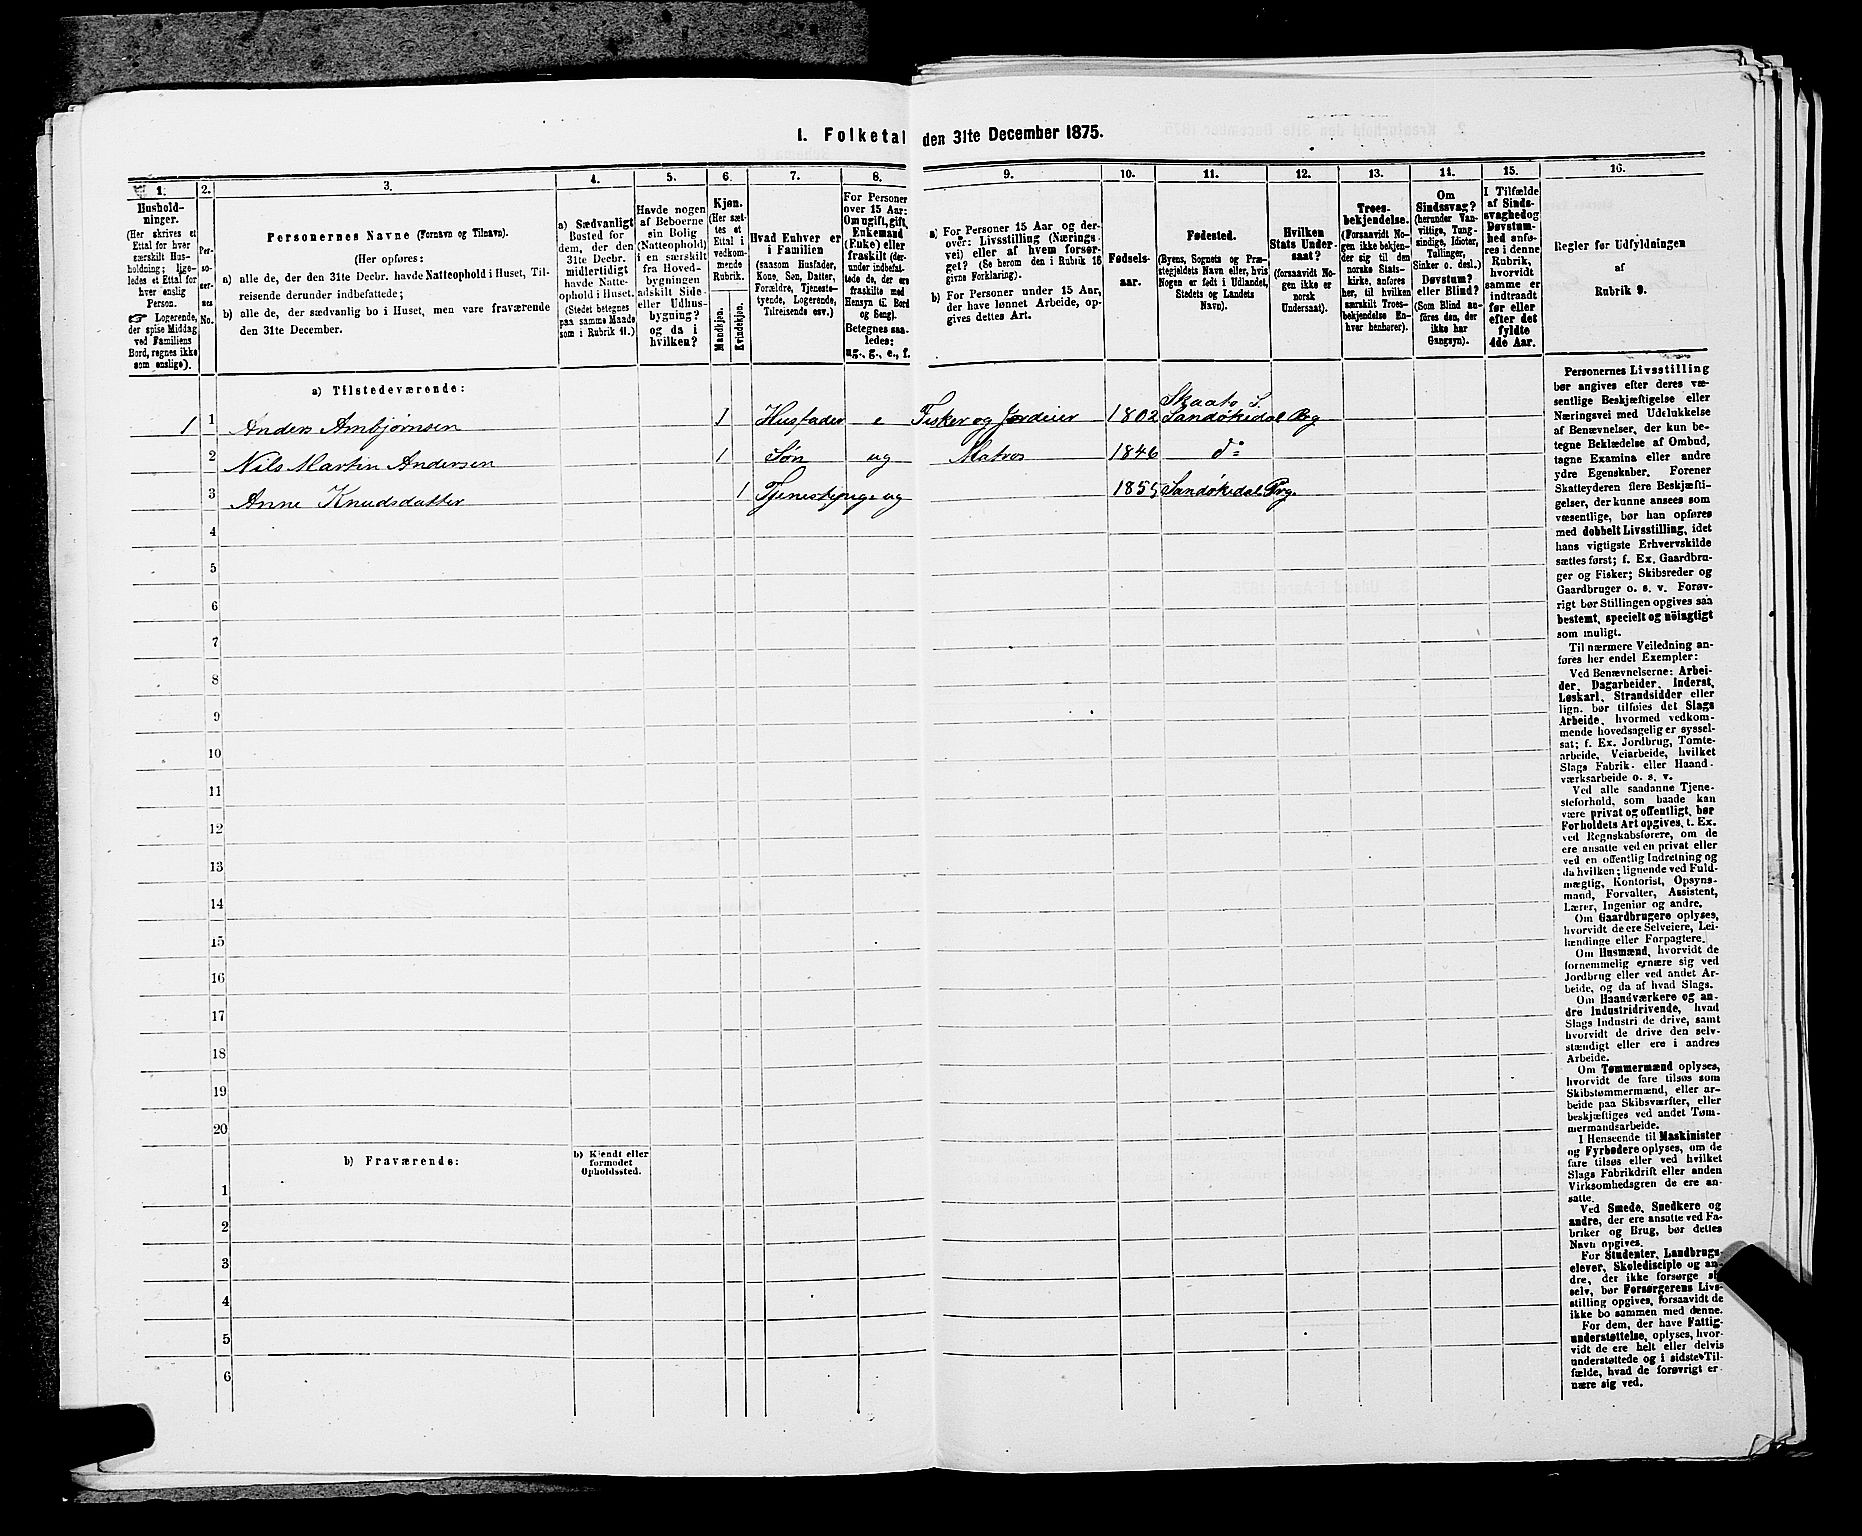 1. Folketal den 31te December 1875.
1. 2. 3. 4. 5. 6. 7. 8. 9. 10. 11. 12. 13. 14. 15. 16.
Hushold-
ninger.
(Her skrives et
Ettal for hver
særskilt Hus-
holdning; lige-
ledes et Ettal for
hver enslig
Person.
☞ Logerende,
der spise Middag
ved Familiens
Bord, regnes ikke
som enslige).
Per-
so-
ner-
nes
No.
Personernes Navne (Fornavn og Tilnavn).
(Her opføres:
a) alle de, der den 31te Decbr. havde Natteophold i Huset, Til-
reisende derunder indbefattede;
b) alle de, der sædvanlig bo i Huset, men vare fraværende
den 31te December.
a) Sædvanligt
Bosted for
dem, der den
31te Decbr.
midlertidigt
havde Natte-
ophold i Huset.
(Stedet betegnes
paa samme Maade
som i Rubrik 11.)
Havde nogen
af Beboerne
sin Bolig
(Natteophold)
i en særskilt
fra Hoved-
bygningen
adskilt Side-
eller Udhus-
bygning?
og da i
hvilken?
Kjøn.
(Her sæt-
tes et
Ettal i
vedkom-
mende
Rubrik.
Mandkjøn.
Kvindekjøn.
Hvad Enhver er
i Familien
(saasom Husfader,
Kone, Søn, Datter,
Forældre, Tjeneste-
tyende, Logerende,
Tilreisende osv.)
For Personer
over 15 Aar:
Om ugift, gift,
Enkemand
(Enke) eller
fraskilt (der-
under indbefat-
tede de, der ere
fraskilte med
Hensyn til Bord
og Seng).
Betegnes saa-
ledes:
ug., g., e., f.
a) For Personer 15 Aar og der-
over: Livsstilling (Nærings-
vei) eller af hvem forsør-
get? (Se herom den i Rubrik 16
givne Forklaring).
b) For Personer under 15 Aar,
der have lønnet Arbeide, op-
gives dettes Art.
Fødsels-
aar.
Fødested.
(Byens, Sognets og Præ-
stegjeldets Navn eller, hvis
Nogen er født i Udlandet,
Stedets og Landets
Navn).
Hvilken
Stats Under-
saat?
(forsaavidt No-
gen ikke er
norsk
Undersaat).
Troes-
bekjendelse.
(Forsaavidt No-
gen ikke bekjen-
der sig til den
norske Stats-
kirke, anføres
her, til hvilken
særskilt Troes-
bekjendelse En-
hver henhører).
Om
Sindssvag?
(herunder Van-
vittige, Tung-
sindige, Idioter,
Tullinger,
Sinker o. desl.)
Døvstum?
eller Blind?
(Som Blind an-
føres den, der
ikke har
Gangsyn).
I Tilfælde
af Sinds-
svaghed og
Døvstum-
hed anfø-
res i denne
Rubrik,
hvorvidt
samme er
indtraadt
før eller
efter det
fyldte
4de Aar.
Regler før Udfyldningen
af
Rubrik 9.
a) Tilstedeværende:
Skaatø S.
1 1 Anders Ambjørnsen 1 Husfader e Fisker og Jordeier 1802 Sandøkedal Prg
2 Nils Martin Andersen 1 Søn ug Matros 1846 do
3 Anne Knudsdatter 1 Tjenestepige ug 1855 Sandøkedal Prg.
4
5
6
7
8
9
10
11
12
13
14
15
16
17
18
19
20
b) Fraværende:
b) Kjendt eller
formodet
Opholdssted.
1
2
3
4
5
6
Personernes Livsstilling
bør angives efter deres væ-
sentlige Beskjæftigelse eller
Næringsvei med Udelukkelse
af Benævnelser, der kun be-
tegne Beklædelse af Ombud,
tagne Examina eller andre
ydre Egenskaber. Forener
Skatteyderen flere Beskjæfti-
gelser, der kunne ansees som
væsentlige, bør han opføres
med dobbelt Livsstilling, idet
hans vigtigste Erhvervskilde
sættes først; f. Ex. Gaardbru-
ger og Fisker; Skibsreder og
Gaardbruger o. s. v. Forøv-
rigt bør Stillingen opgives saa
bestemt, specielt og nöiagtigt
som muligt.
Til nærmere Veiledning an-
føres her endel Exempler:
Ved Benævnelserne: Arbei-
der, Dagarbeider, Inderst,
Løskarl, Strandsidder eller
lign. bør tilføies det Slags
Arbeide, hvormed vedkom-
mende hovedsagelig er syssel-
sat; f. Ex. Jordbrug, Tomte-
arbeide, Veiarbeide, hvilket
Slags Fabrik- eller Haand-
værksarbeide o. s. v.
Ved alle saadanne Tjene-
steforhold, som baade kan
være privat og offentligt, bør
Forholdets Art opgives, t. Ex.
ved Regnskabsførere, om de
ere ansatte ved en privat eller
ved en offentlig Indretning og
da hvilken; lignende ved Fuld-
mægtig, Kontorist, Opsyns-
mand, Forvalter, Assistent,
Lærer, Ingeniør og andre.
Om Gaardbrugere oplyses,
hvorvidt de ere Selveiere, Lei-
lændinge eller Forpagtere.
Om Husmænd, hvorvidt de
fornemmelig ernære sig ved
Jordbrug eller ved andet Ar-
beide, og da af hvad Slags.
Om Haandværkere og an-
dre Industridrivende, hvad
Slags Industri de drive, samt
hvorvidt de drive den selv-
stændigt eller ere i andres
Arbeide.
Om Tømmermænd oplyses,
hvorvidt de fare tilsøs som
Skibstømmermænd, eller ar-
beide paa Skibsværfter, eller
beskjæftiges ved andet Tøm-
mermandsarbeide.
I Henseende til Maskinister
og Fyrbødere oplyses, om de
fare tilsøs eller ved hvilket
Slags Fabrikdrift eller anden
Virksomhedsgren de ere an-
satte.
Ved Smede, Snedkere og
andre, der ere ansatte ved Fa-
briker og Brug, bør dettes
Navn opgives.
For Studenter, Landbrugs-
elever, Skoledisciple og an-
dre, der ikke forsørge sig
selv, bør Forsørgerens Livs-
stilling opgives, forsaavidt de
ikke bo sammen med denne.
For dem, der have Fattig-
understøttelse, oplyses, hvor-
vidt de ere helt eller delvis
understøttede og i sidste Til-
fælde, hvad de forøvrigt er-
nære sig ved.